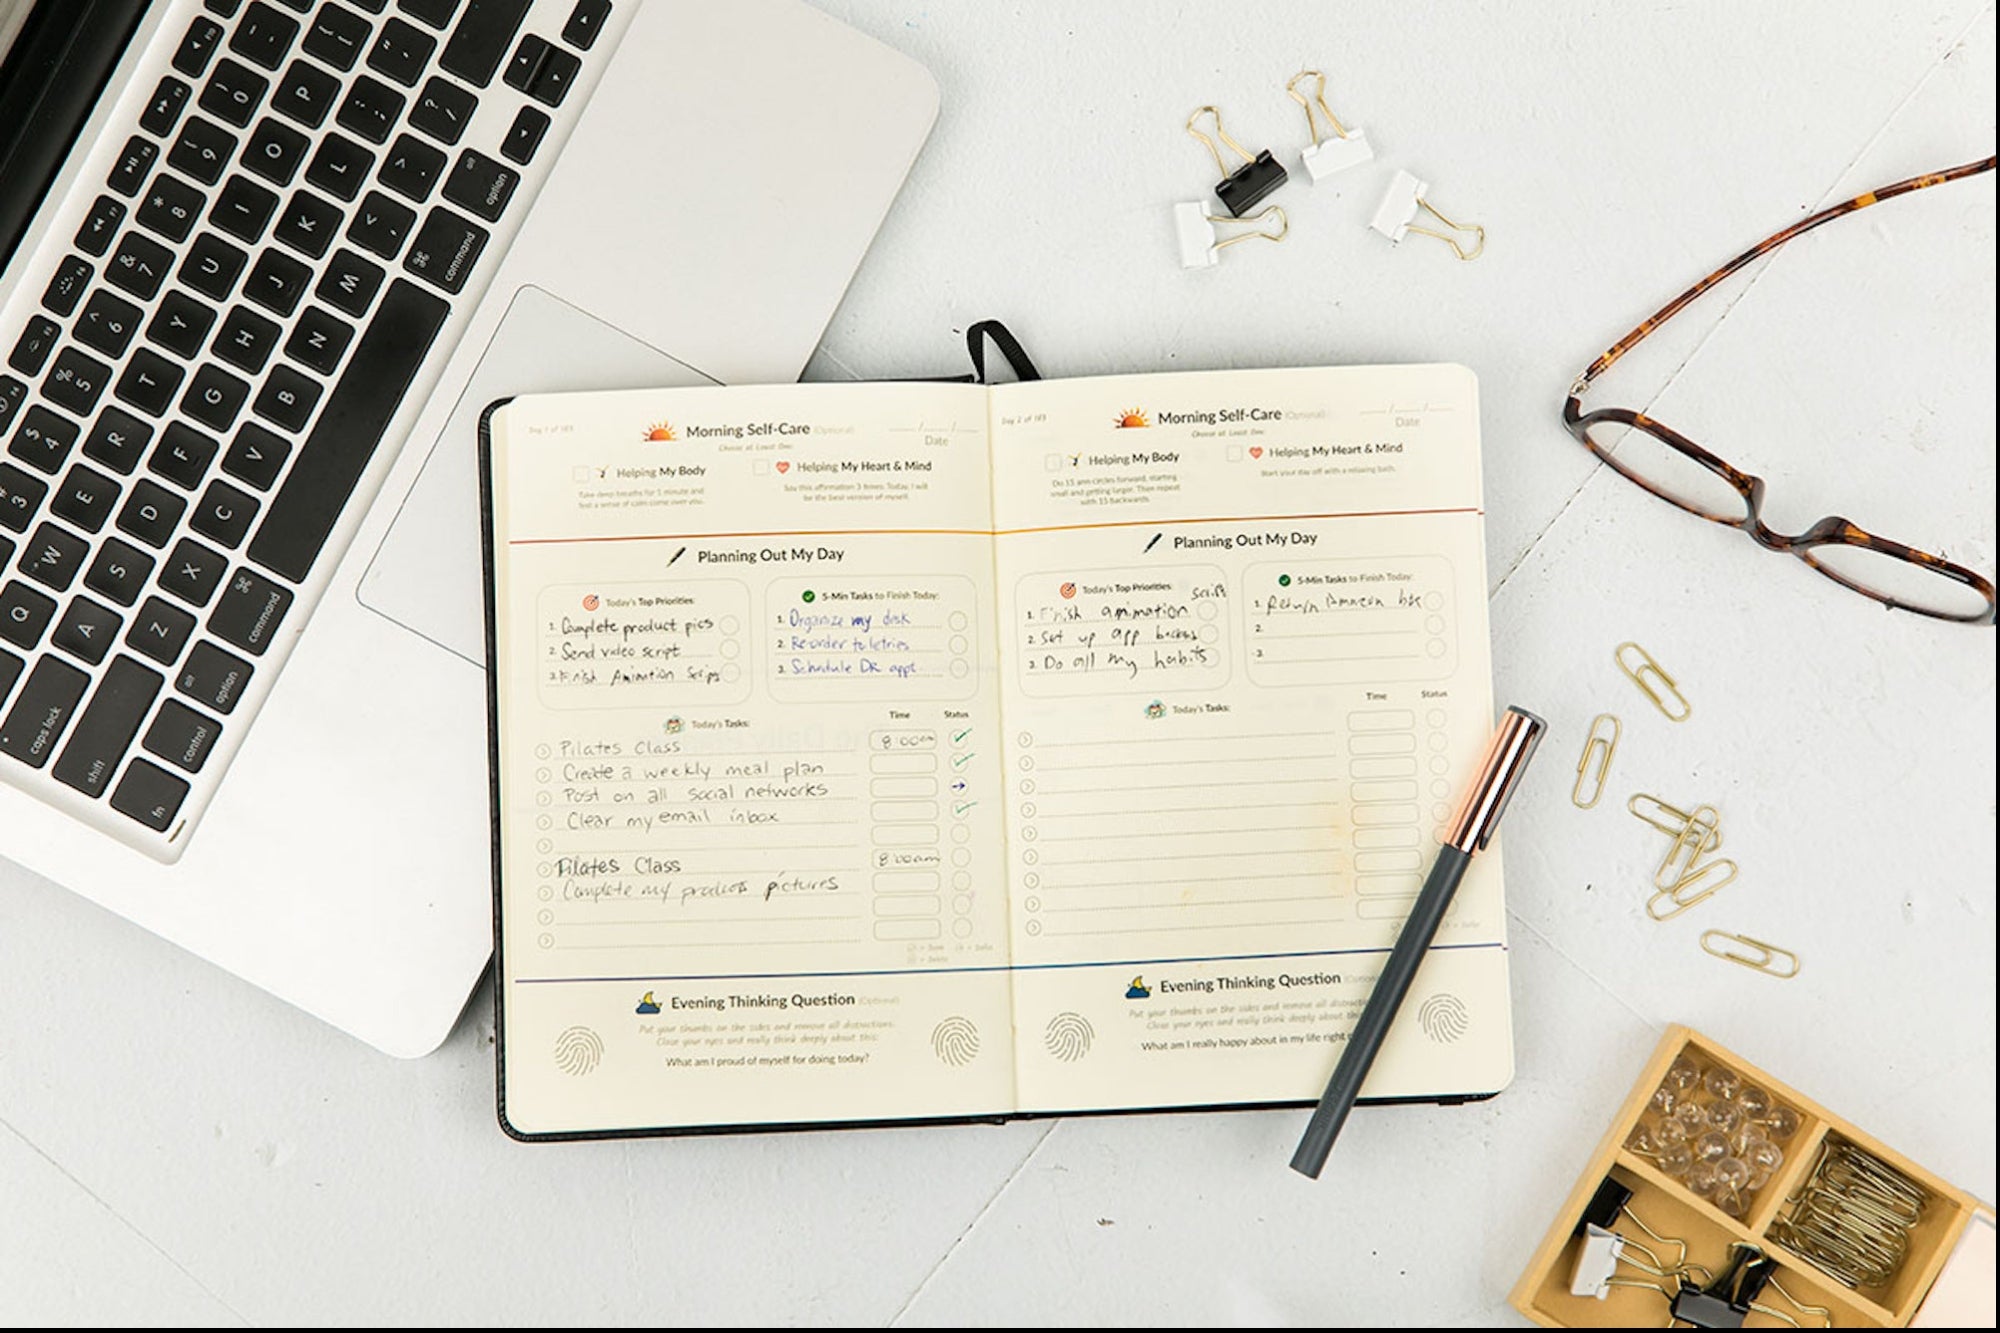 Day 1 of 183
Morning Self-Care (Optional)
Date
Choose at Least One:
Helping My Body
Helping My Heart & Mind
Take deep breaths for 1 minute and
feel a sense of calm come over you.
Say this affirmation 3 times: Today, I will
be the best version of myself.
Planning Out My Day
Today's Top Priorities:
1. Complete product pics
2. Send video script
3. Finish Animation Script
5-Min Tasks to Finish Today:
1. Organize my disk
2. Re-order toletries
3. Schedule DR appt.
Today's Tasks:
Time
Status
Pilates Class 8:00am
Create a weekly meal plan
Post on all social networks
Clear my email inbox
Pilates Class 8:00am
Complete my product pictures
Evening Thinking Question (Optional)
Put your thumbs on the sides and remove all distractions.
Close your eyes and really think deeply about this:
What am I proud of myself for doing today?
Day 2 of 183
Morning Self-Care (Optional)
Date
Choose at Least One:
Helping My Body
Helping My Heart & Mind
Do 15 arm circles forward, starting
small and getting larger. Then repeat
with 15 backwards.
Start your day off with a relaxing bath.
Planning Out My Day
Today's Top Priorities:
1. Finish animation script
2. Set up app
3. Do all my habits
5-Min Tasks to Finish Today:
1. Return Amazon box
2.
3.
Today's Tasks:
Time
Status
Evening Thinking Question
Put your thumbs on the sides and remove all
Close your eyes and really think deeply about
What am I really happy about in my life right
command
option
control
fn
shift
caps lock
command
option